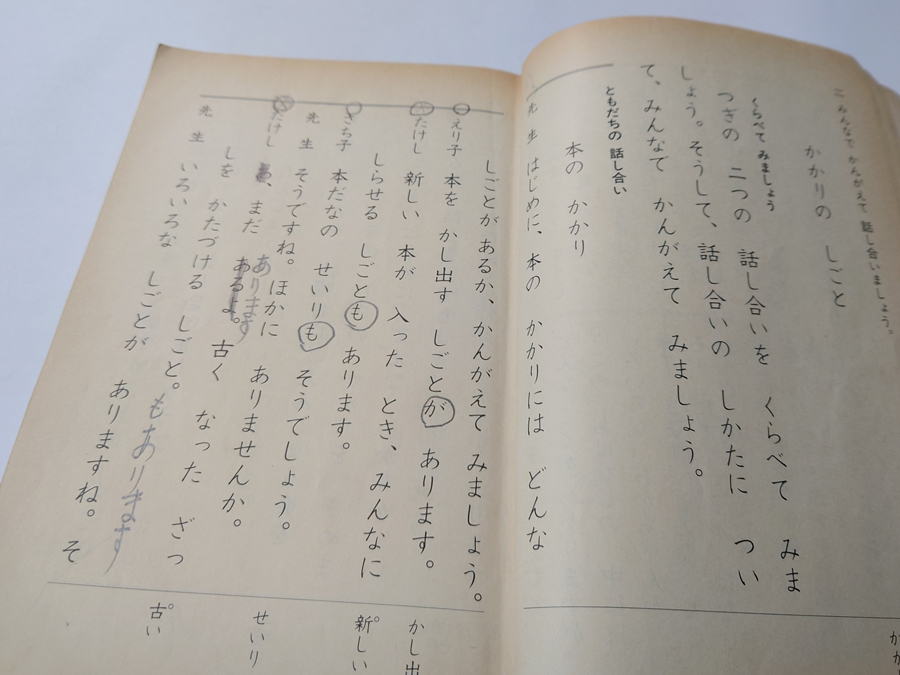 みんなで かんがえて 話し合いましょう。
かかりの しごと
くらべて みましょう
つぎの 二つの 話し合いを くらべて みま
しょう。そうして、話し合いの しかたに つい
て、みんなで かんがえて みましょう。
ともだちの 話し合い
本の かかり
先生 はじめに、本の かかりには どんな
しごとが あるか、かんがえて みましょう。
えり子 本を かし出す しごとが あります。
たけし 新しい 本が 入った とき、みんなに
しらせる しごとも あります。
さち子 本だなの せいりも そうでしょう。
先生 そうですね。ほかに ありませんか。
たけし まだ あるよ。古く なった ざっ
あります
しを かたづける しごと。
もあります
先生 いろいろな しごとが ありますね。そ
かし出
新しい
せいり
古い